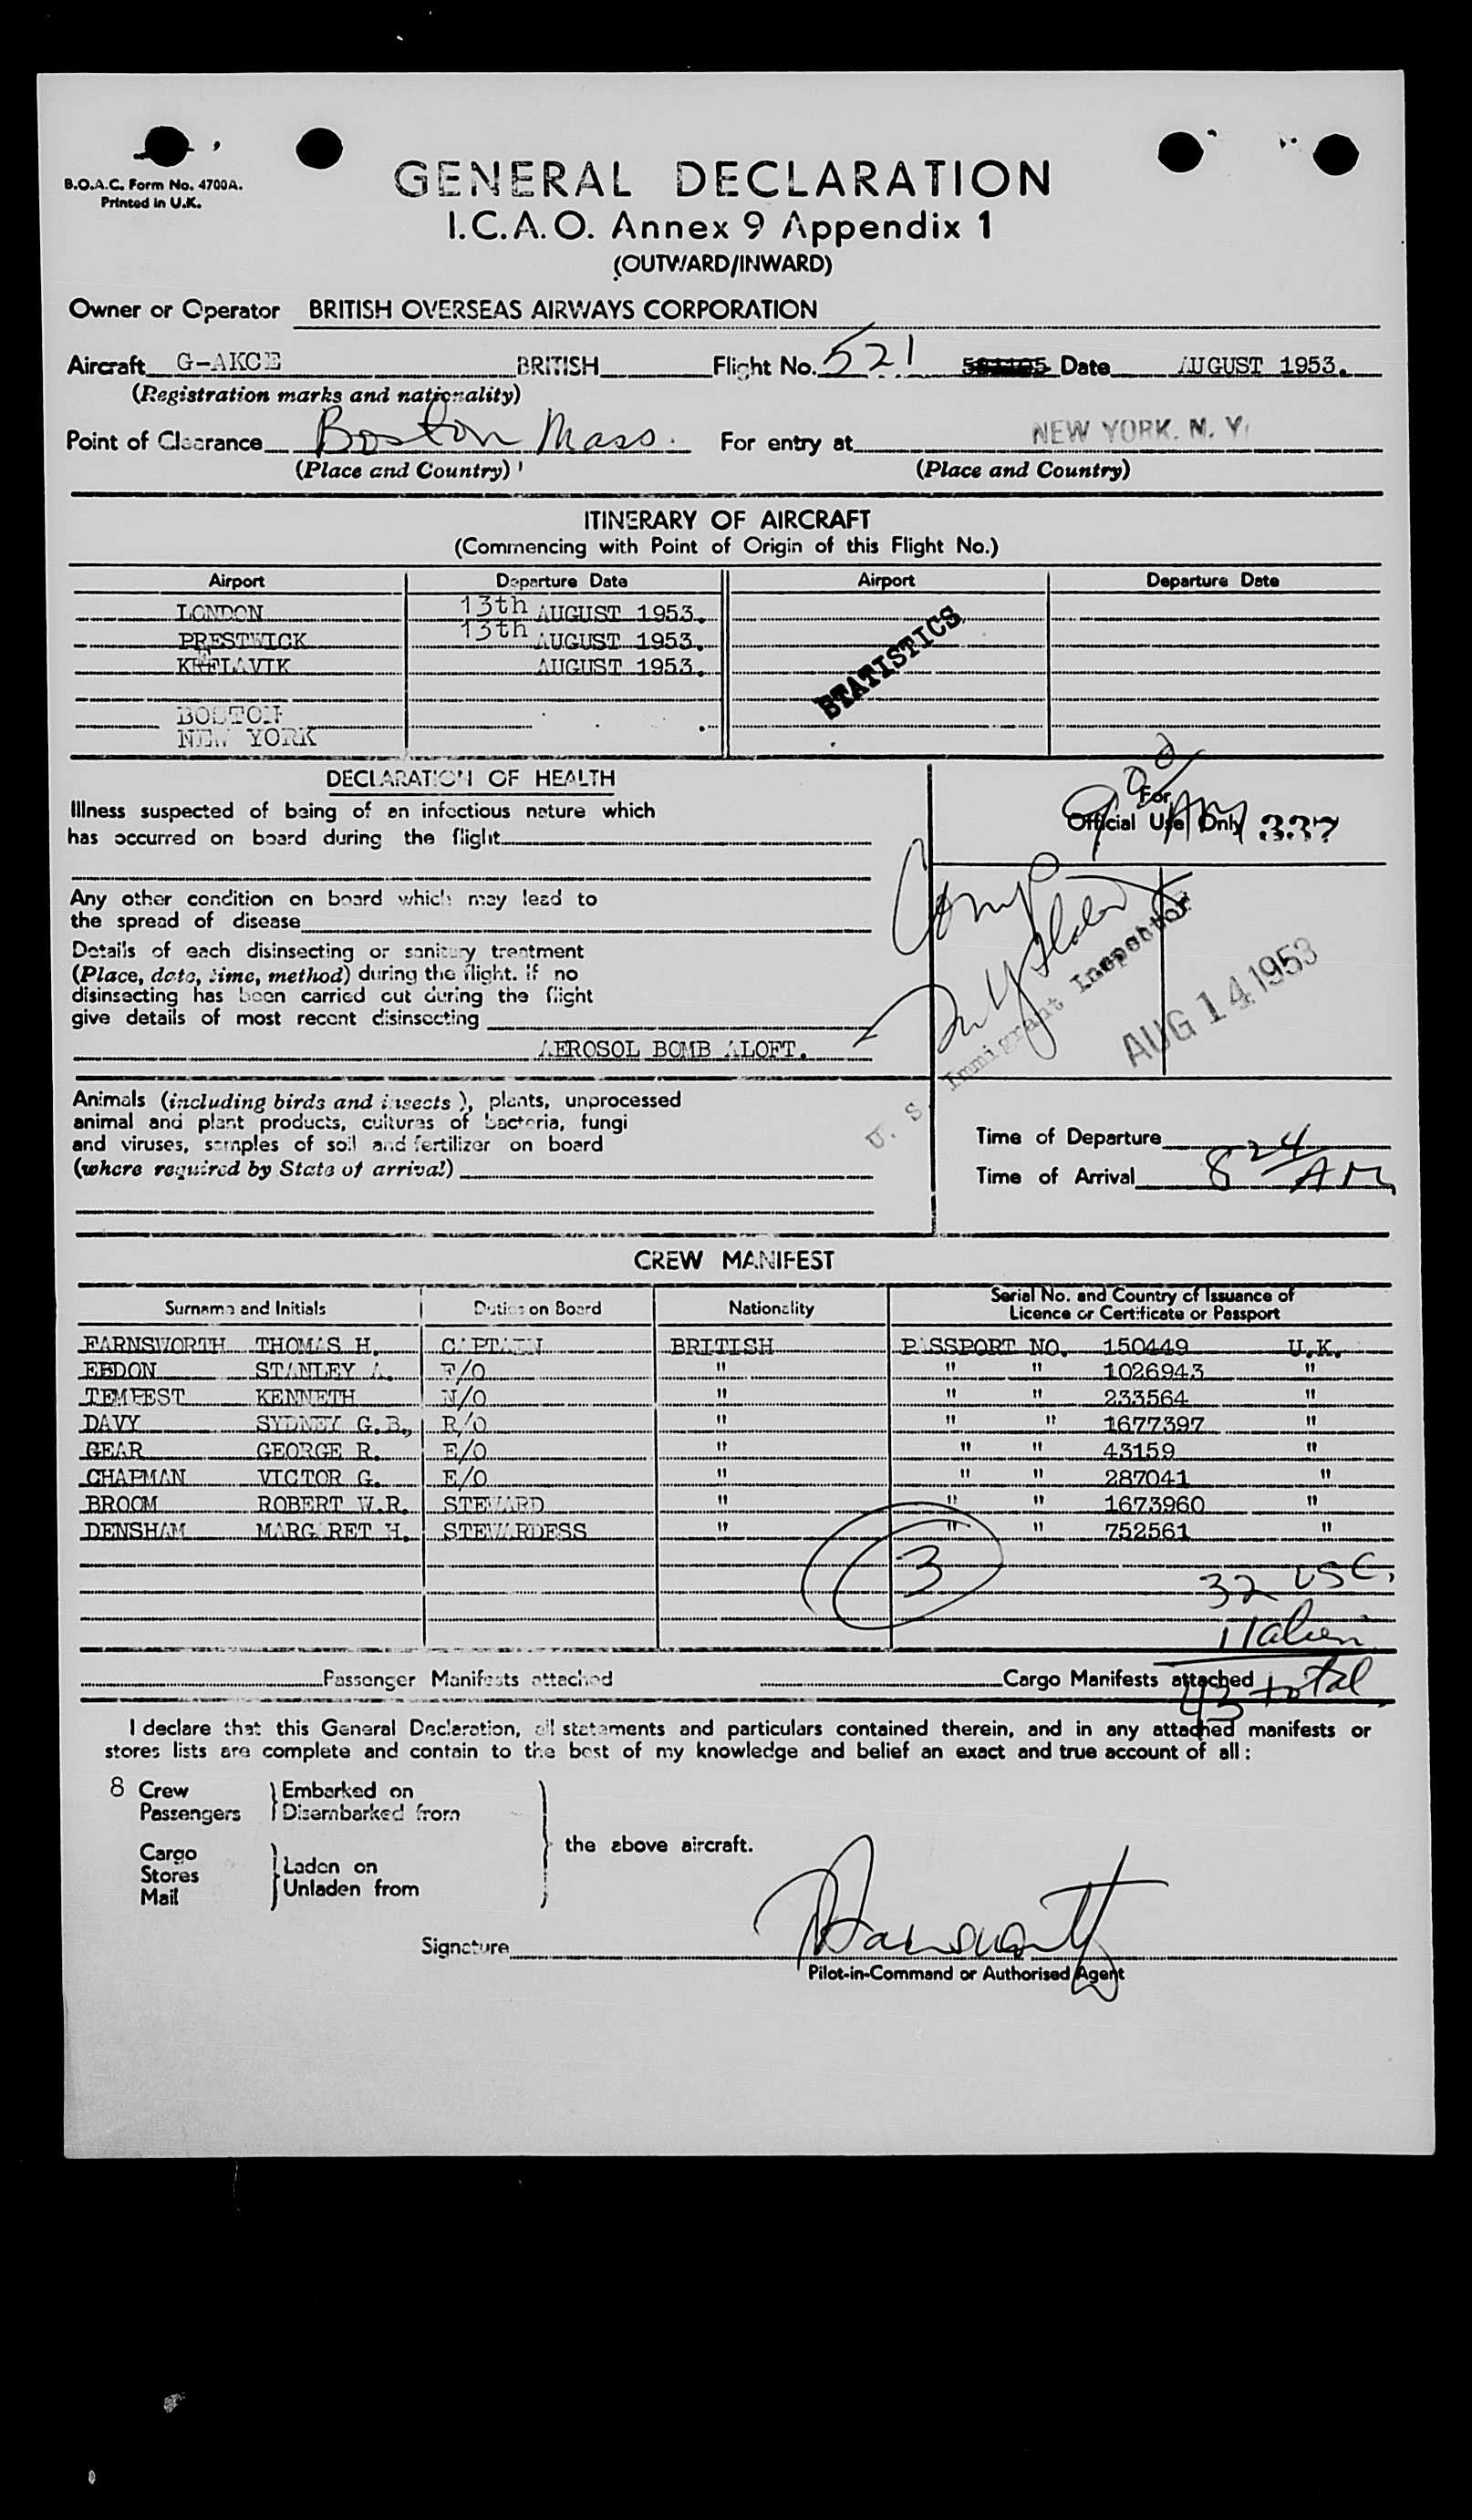 B.O.A.C. Form No. 4700A.
Printed in U.K.
GENERAL DECLARATION
I.C.A.O. Annex 9 Appendix 1
(OUTWARD/INWARD)
Owner or Operator BRITISH OVERSEAS AIRWAYS CORPORATION
Aircraft G-AKCE BRITISH Flight No. 521 Date AUGUST 1953.
(Registration marks and nationality)
Point of Clearance Boston Mass. For entry at NEW YORK. N. Y.
(Place and Country) (Place and Country)
ITINERARY OF AIRCRAFT
(Commencing with Point of Origin of this Flight No.)
Airport Departure Date Airport Departure Date
LONDON 13th AUGUST 1953.
PRESTWICK 13th AUGUST 1953.
KEFLAVIK AUGUST 1953.
BOSTON
NEW YORK
STATISTICS
DECLARATION OF HEALTH
Illness suspected of being of an infectious nature which
has occurred on board during the flight
Any other condition on board which may lead to
the spread of disease
Details of each disinsecting or sanitary treatment
(Place, date, time, method) during the flight. If no
disinsecting has been carried out during the flight
give details of most recent disinsecting
AEROSOL BOMB ALOFT.
Animals (including birds and insects), plants, unprocessed
animal and plant products, cultures of bacteria, fungi
and viruses, samples of soil and fertilizer on board
(where required by State of arrival)
For
Official Use Only 337
U. S. Immigrant Inspector
AUG 14 1953
Time of Departure
Time of Arrival 8 24 AM
CREW MANIFEST
Surname and Initials Duties on Board Nationality Serial No. and Country of Issuance of
Licence or Certificate or Passport
FARNSWORTH THOMAS H. CAPTAIN BRITISH PASSPORT NO. 150449 U.K.
EBDON STANLEY A. F/O " " " 1026943 "
TEMPEST KENNETH N/O " " " 233564 "
DAVY SYDNEY G.B., R/O " " " 1677397 "
GEAR GEORGE R. E/O " " " 43159 "
CHAPMAN VICTOR G. E/O " " " 287041 "
BROOM ROBERT W.R. STEWARD " " " 1673960 "
DENSHAM MARGARET H. STEWARDESS " " " 752561 "
3
32 USC.
11 alien
43 total
Passenger Manifests attached Cargo Manifests attached
I declare that this General Declaration, all statements and particulars contained therein, and in any attached manifests or
stores lists are complete and contain to the best of my knowledge and belief an exact and true account of all:
8 Crew Embarked on
Passengers Disembarked from
the above aircraft.
Cargo
Stores Laden on
Mail Unladen from
Signature
Pilot-in-Command or Authorised Agent